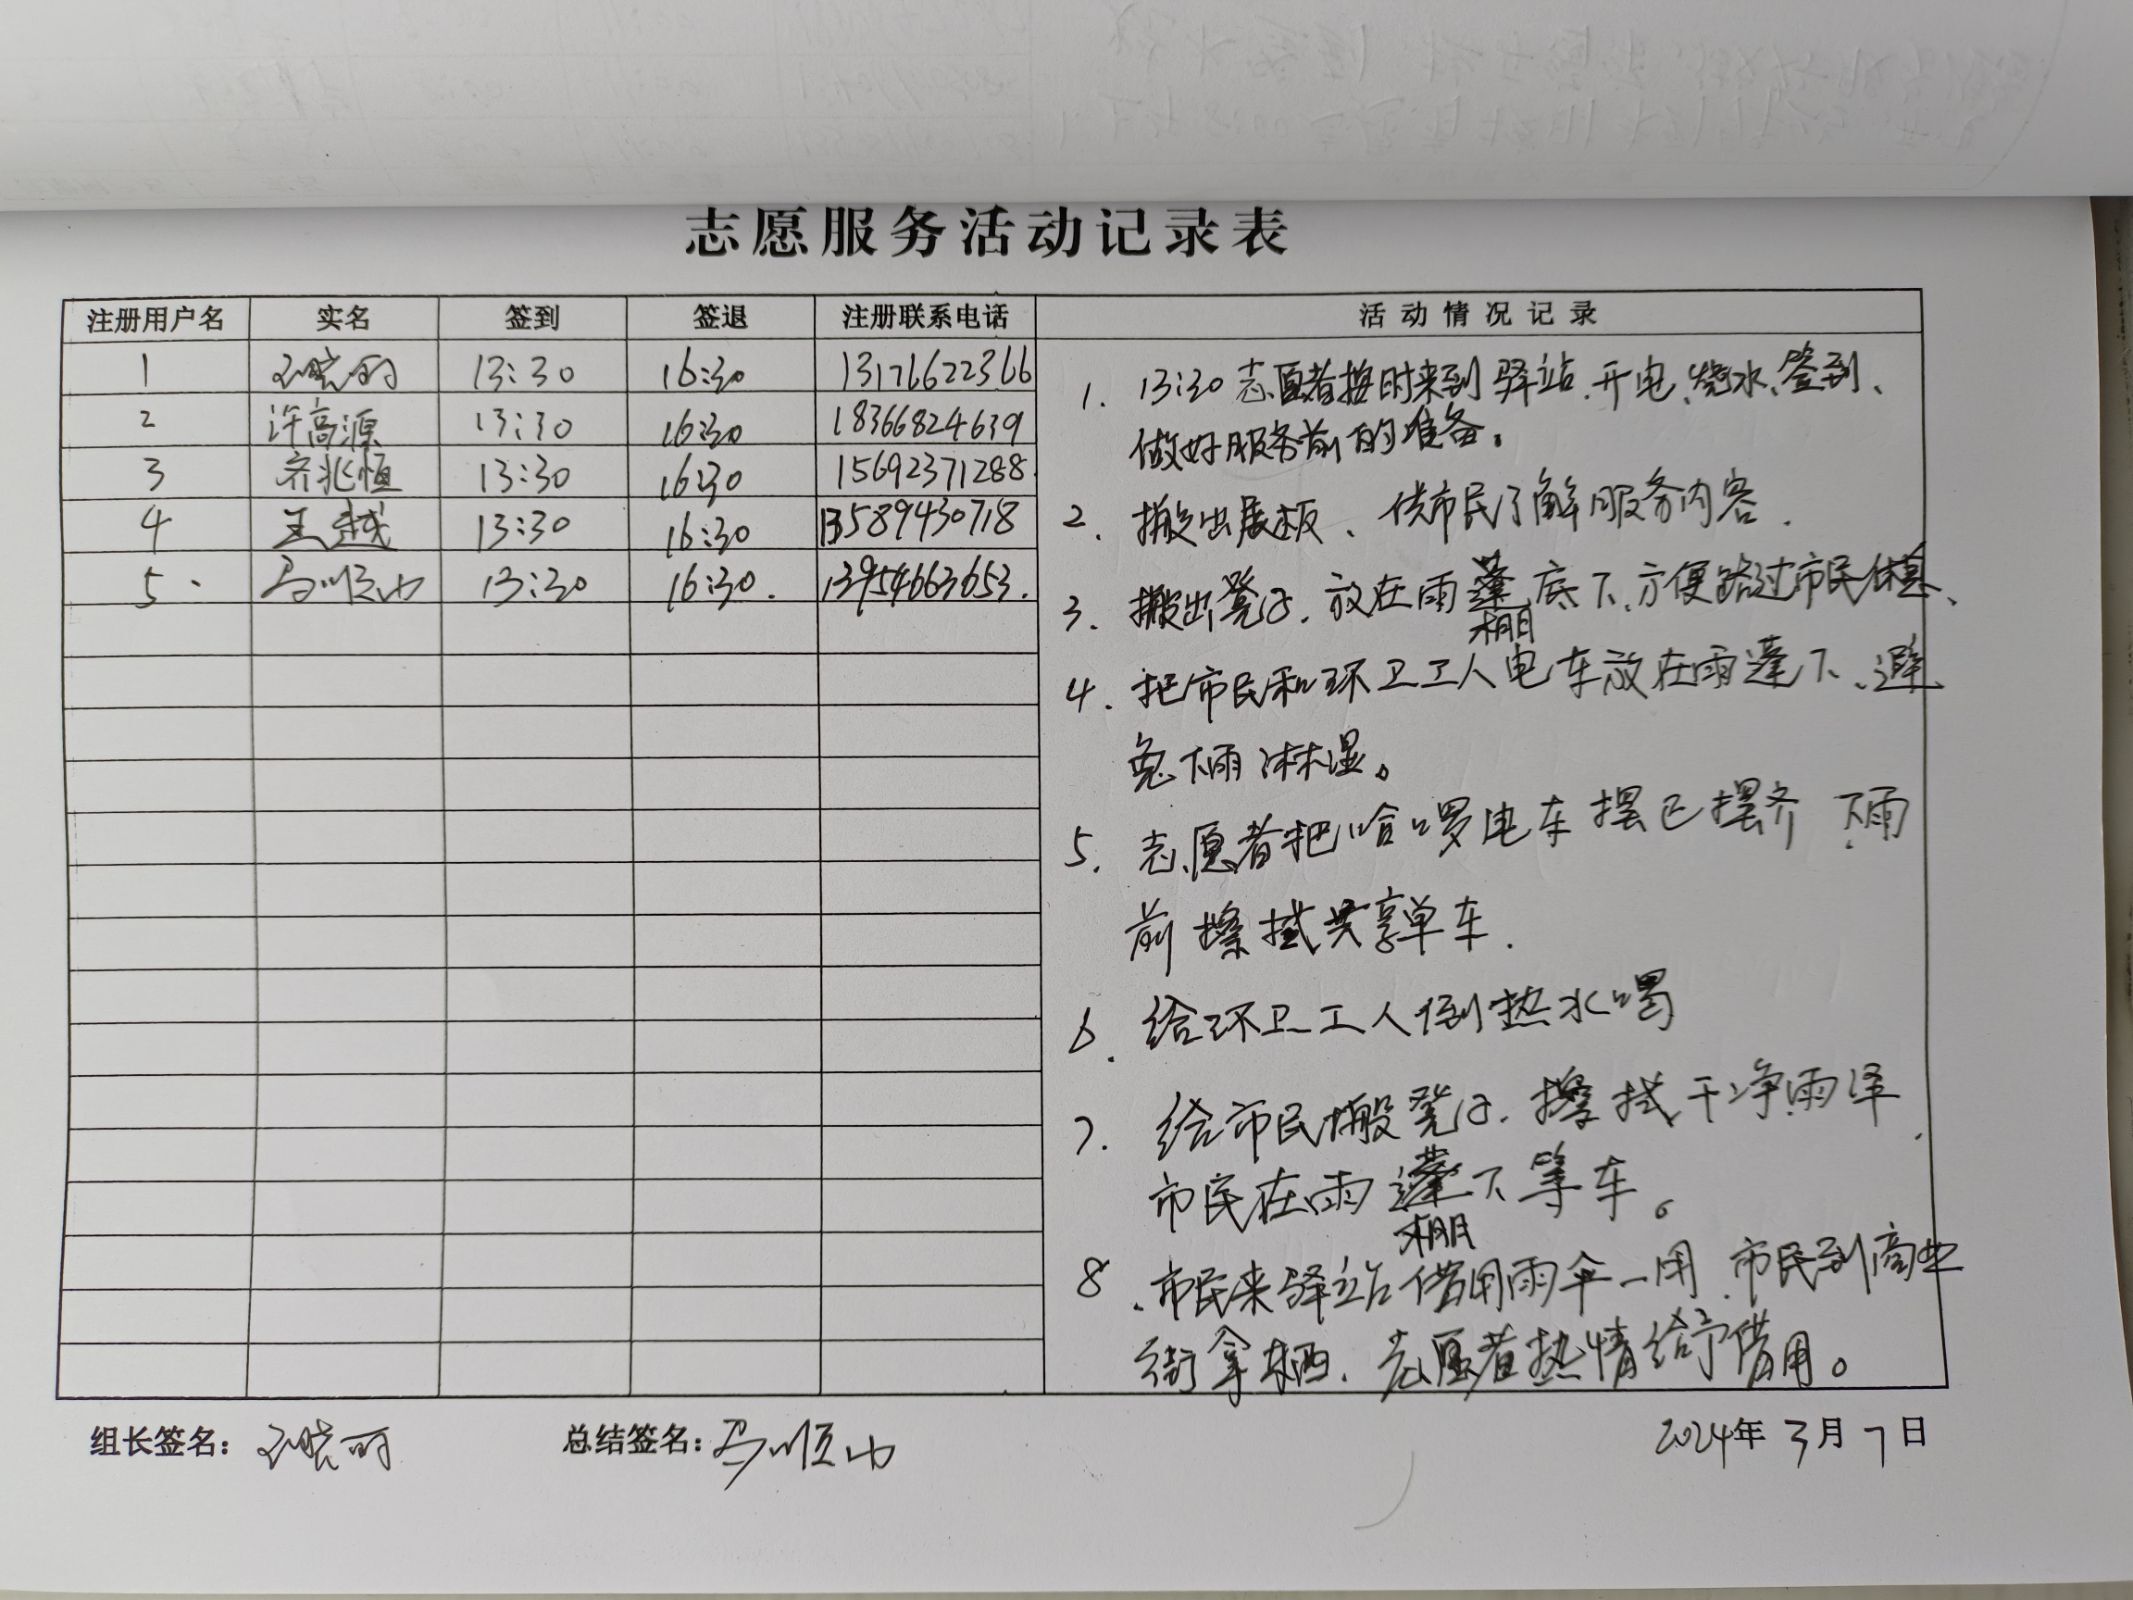 志愿服务活动记录表
注册用户名 实名 签到 签退 注册联系电话 活动情况记录
1 13:30 16:30 13176622366
2 许高源 13:30 16:30 18366824639
3 齐兆恒 13:30 16:30 15692371288
4 王越 13:30 16:30 13589430718
5. 马顺山 13:30 16:30. 13954663653.
1. 13:30志愿者按时来到驿站.开电、烧水、签到、
做好服务前的准备。
2. 搬出展板、供市民了解服务内容.
3. 搬出凳子.放在雨蓬底下.方便路过市民休息、
棚
4. 把市民和环卫工人电车放在雨蓬下、避
免下雨淋湿。
5. 志愿者把哈啰电车摆正摆齐 下雨
前擦拭共享单车.
6. 给环卫工人倒热水喝
7. 给市民搬凳子.擦拭干净雨泽.
市民在雨蓬下等车。
棚
8.市民来驿站借用雨伞一用.市民到商业
街拿东西.志愿者热情给予借用。
组长签名：
总结签名：马顺山
2024年3月7日